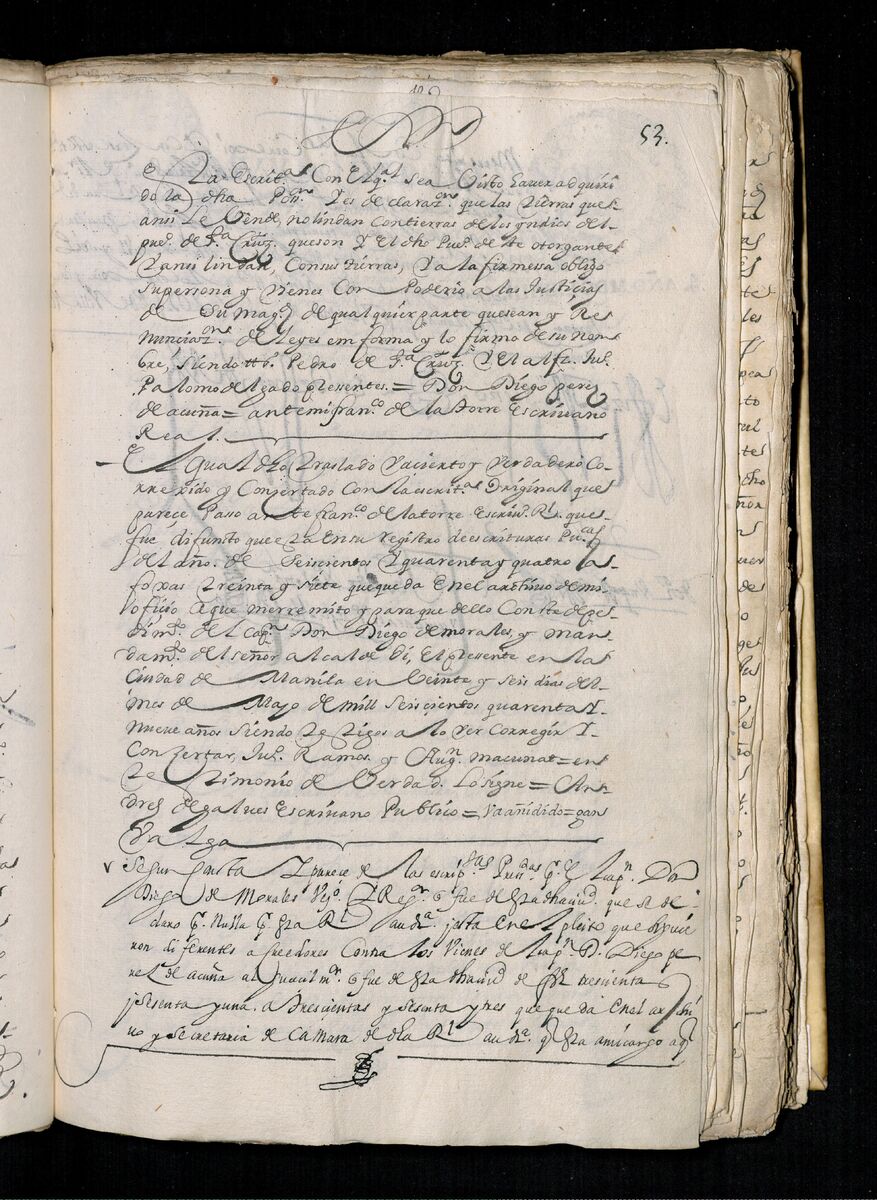 53.
La escrit.as con el q.l sea visto haver adquiri
do la dha Pos.on Y es declaraz.on que las tierras que
ansi le Vende, no lindan con tierras de los yndios del
pue.o de S.ta Cruz. que son Y el dho Pue.o de este otorgante
Y ansi lindan, Con sus tierras, Y a la firmessa obligo
su persona y vienes Con Poderio a las Justicias
de Su Mag.d de qualquier parte que sean y Re
nunciaz.on de leyes en forma y lo firmo de su nom
bre, siendo tt.os Pedro de S.ta Cruz Y el alf.z Ju.o
Palomo delgado pressentes = Don Diego peres
de acuña = ante mi fran.co de la Torre Escrivano
Real
El qual dho traslado Va cierto y Verdadero Co
rrexido y Consertado Con la escrit.as Original que
parece Passo ante fran.co de la torre escriv.o R.l que
fue difunto que esta en su registro de escrituras Pu.cas
del año de Seiscientos Y quarenta y quatro a
foxas treinta y siete que queda en el archivo de mi
oficio A que me rremito y para que dello Conste de pe
dim.to del cap.n Don Diego de morales, y man
dam.to del señor alcalde di, el pressente en la
Ciudad de Manila en Veinte y seis dias del
mes de Mayo de mill seiscientos quarenta Y
nueve años siendo testigos a lo ver corregir Y
Conzertar, Ju.o Ramos y Aug.n macunat = en
testimonio de Verdad. Lo signe = An
dres de galves escrivano Publico = Va añidido = gan
Valga
Segun Consta Y parece de las escrip.ras Pres.das
Diego de Morales Vez.o Y Reg.or q fue de esta dha ciud. que se de
claro
R.l aud.a jesta en el pleito que siguie
ron diferentes acreedores Contra los Vienes del cap.n D. Diego pe
rez de acuña alguacil m.r q fue de esta dha ciud de fs. trescientas
jsesenta y una. a trescientas y sesenta y tres que queda en el archi
vo y secretaria de camara de dha R.l aud.a q esta a mi cargo a q